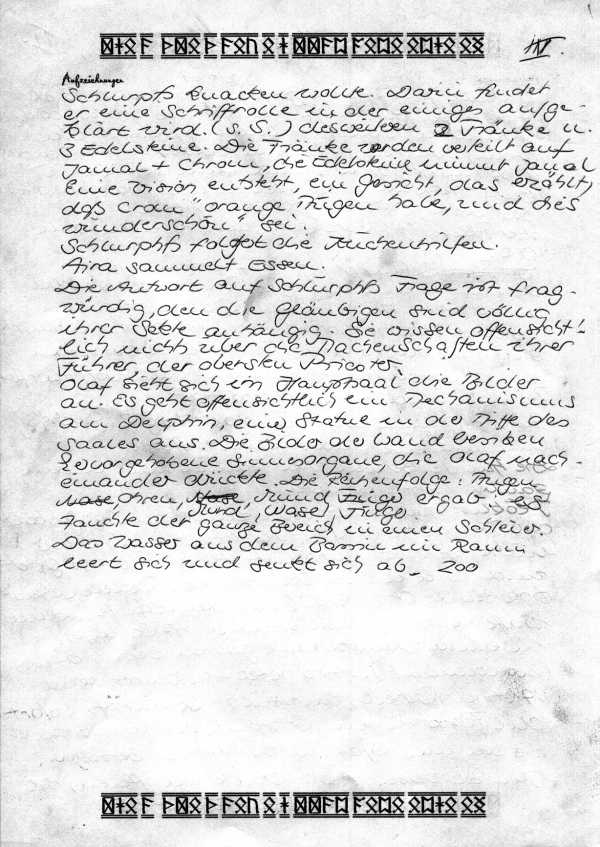 III.
Aufzeichnungen
Schlurpfs knacken wollte. Darin findet
er eine Schriftrolle in der einiges aufge-
klärt wird. (s. S. ) desweiteren 2 Tränke u.
3 Edelsteine. Die Tränke werden verteilt auf
Jamal + Chrom, die Edelsteine nimmt Jamal
Eine Vision entsteht, ein Gesicht, das erzählt,
daß Crom "orange Augen habe, und dies
wunderschön" sei.
Schlurpfs folgt die Küchenhilfen.
Aira sammelt Essen.
Die Antwort auf Schlurpfs Frage ist frag-
würdig, den die Gläubigen sind völlig
ihrer Sekte anhängig. Sie wissen offensicht-
lich nicht über die Machenschaften ihrer
Führer, der obersten Priester.
Olaf sieht sich im Hauptsaal die Bilder
an. Es geht offensichtlich ein Mechanismus
am Delphin, einer Statue in der Mitte des
Saales aus. Die Bilder der Wand besitzen
hervorgehobene Sinnesorgane, die Olaf nach-
einander drückte. Die Reihenfolge: Augen,
Nase Ohren, Nase, Mund Auge ergab. es
Mund, Nase, Auge
tauchte der ganze Bereich in einen Schleier.
Das Wasser aus dem Bassin im Raum
leert sich und senkt sich ab_ 200